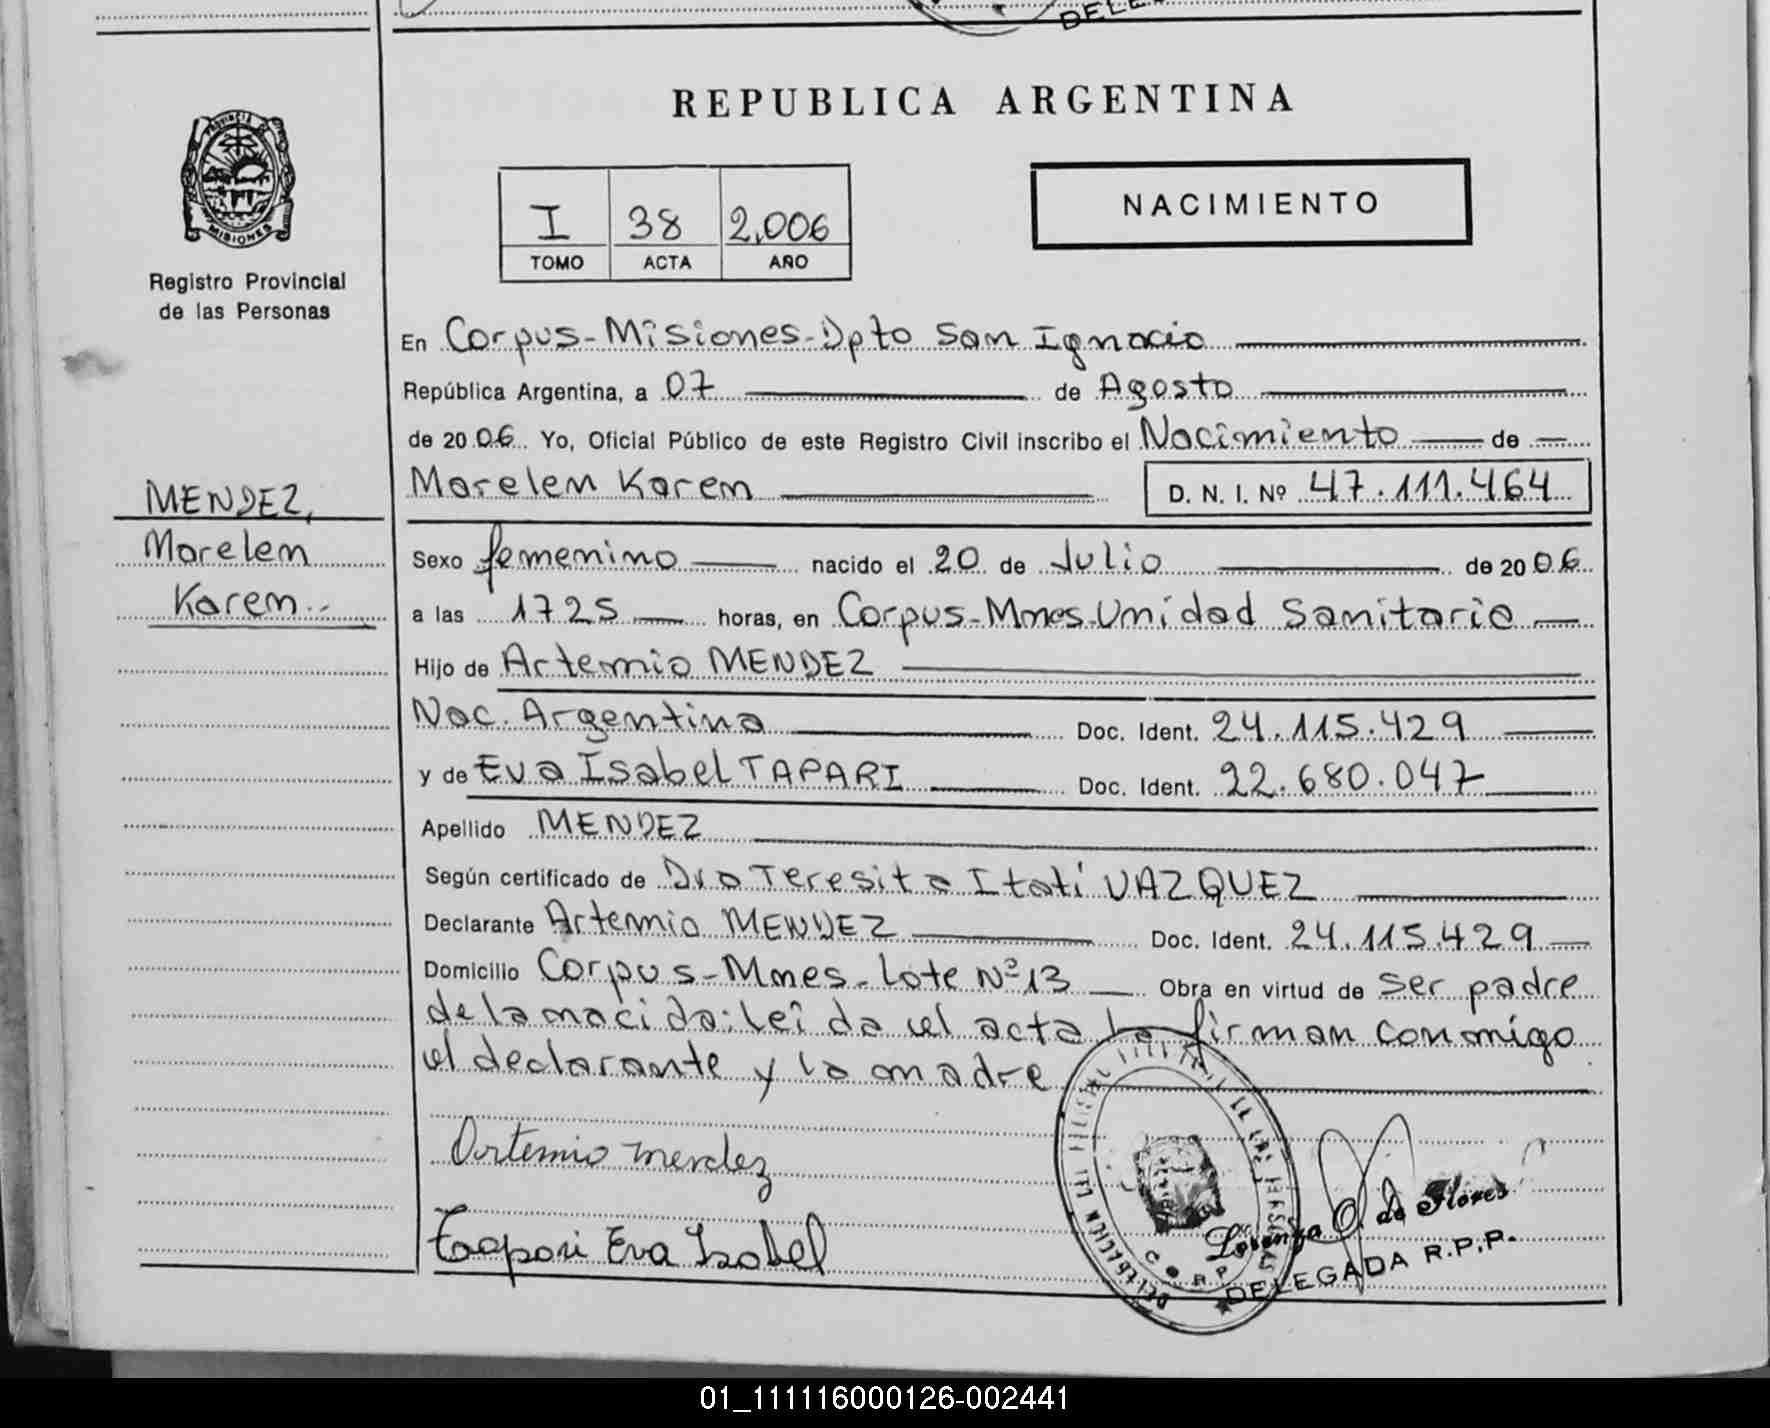 DELE
REPUBLICA ARGENTINA
PROVINCIA DE
MISIONES
Registro Provincial
de las Personas
I 38 2,006
TOMO ACTA AÑO
NACIMIENTO
En Corpus-Misiones-Dpto San Ignacio
República Argentina, a 07 de Agosto
de 2006 Yo, Oficial Público de este Registro Civil inscribo el Nacimiento de
Marelen Karem
D. N. I. Nº 47.111.464
MENDEZ,
Marelen
Karem.-
Sexo femenino nacido el 20 de Julio de 2006
a las 1725 horas, en Corpus-Mnes-Unidad Sanitaria
Hijo de Artemio MENDEZ
Nac. Argentina Doc. Ident. 24.115.429
y de Eva Isabel TAPARI Doc. Ident. 22.680.047
Apellido MENDEZ
Según certificado de Dra Teresita Itatí VAZQUEZ
Declarante Artemio MENDEZ Doc. Ident. 24.115.429
Domicilio Corpus-Mnes-Lote Nº13 Obra en virtud de ser padre
de la nacida: Leída el acta la firman conmigo
el declarante y la madre
Artemio mendez
Tapari Eva Isabel
Lorenza O. de Flores
DELEGADA R.P.P.
01_111116000126-002441